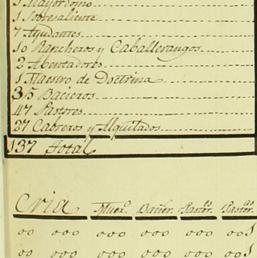 3 Mayordomo
1 Sobresaliente
7 Ayudantes
10 Rancheros y Caballerangos
2 Aventadores
1 Maestro de Doctrina
35 Bacieros
47 Pastores
27 Cabreros y Alquilados
137 Total
Cria Bacier.
00 000 000 000 001
00 000 000 000 001